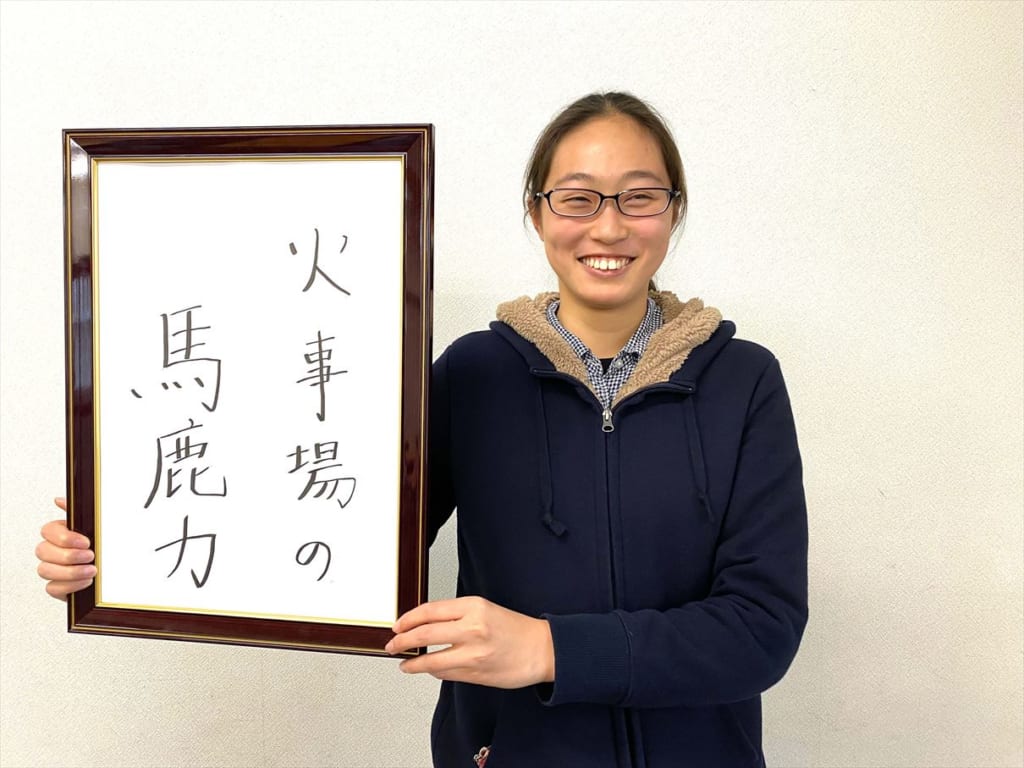 火事場の
馬鹿力